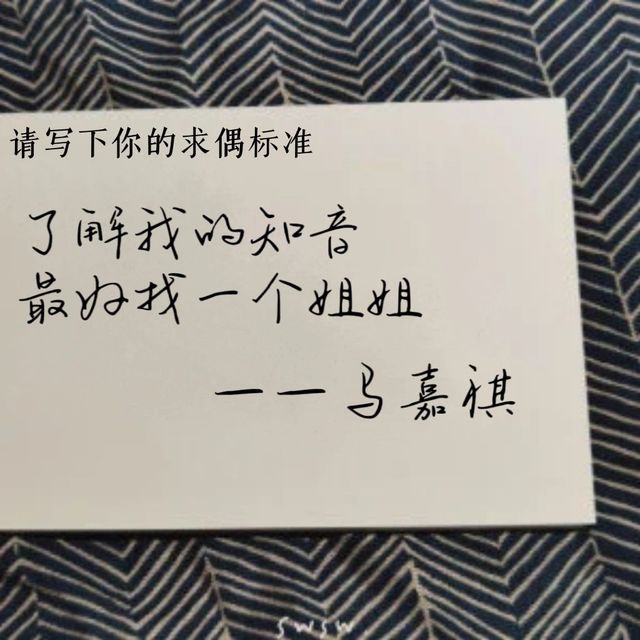 请写下你的求偶标准
了解我的知音
最好找一个姐姐
——马嘉祺
swsw.